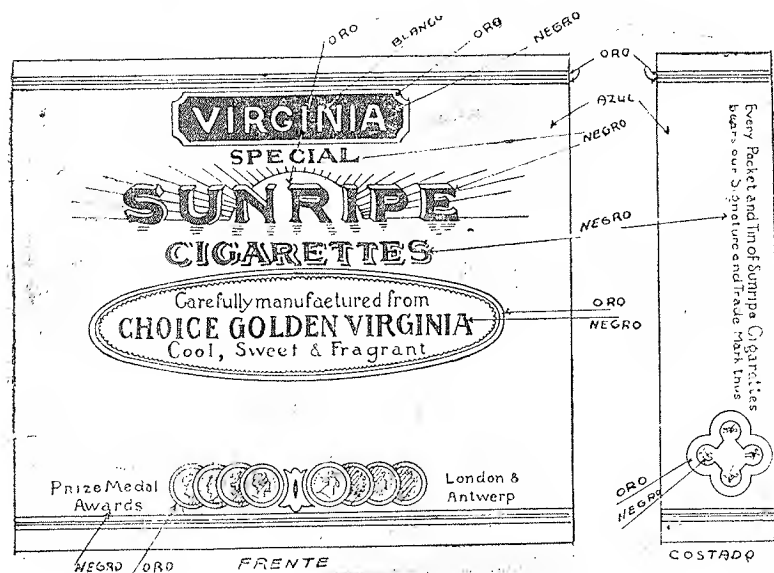 ORO
BLANCO
ORO
NEGRO
ORO
VIRGINIA
AZUL
SPECIAL
NEGRO
SUNRIPE
NEGRO
CIGARETTES
NEGRO
Carefully manufactured from
CHOICE GOLDEN VIRGINIA
Cool, Sweet & Fragrant
ORO
NEGRO
Prize Medal
Awards
London &
Antwerp
NEGRO ORO
FRENTE
Every Packet and Tin of Sunripe Cigarettes
bears our Signature and Trade Mark thus
ORO
NEGRO
COSTADO